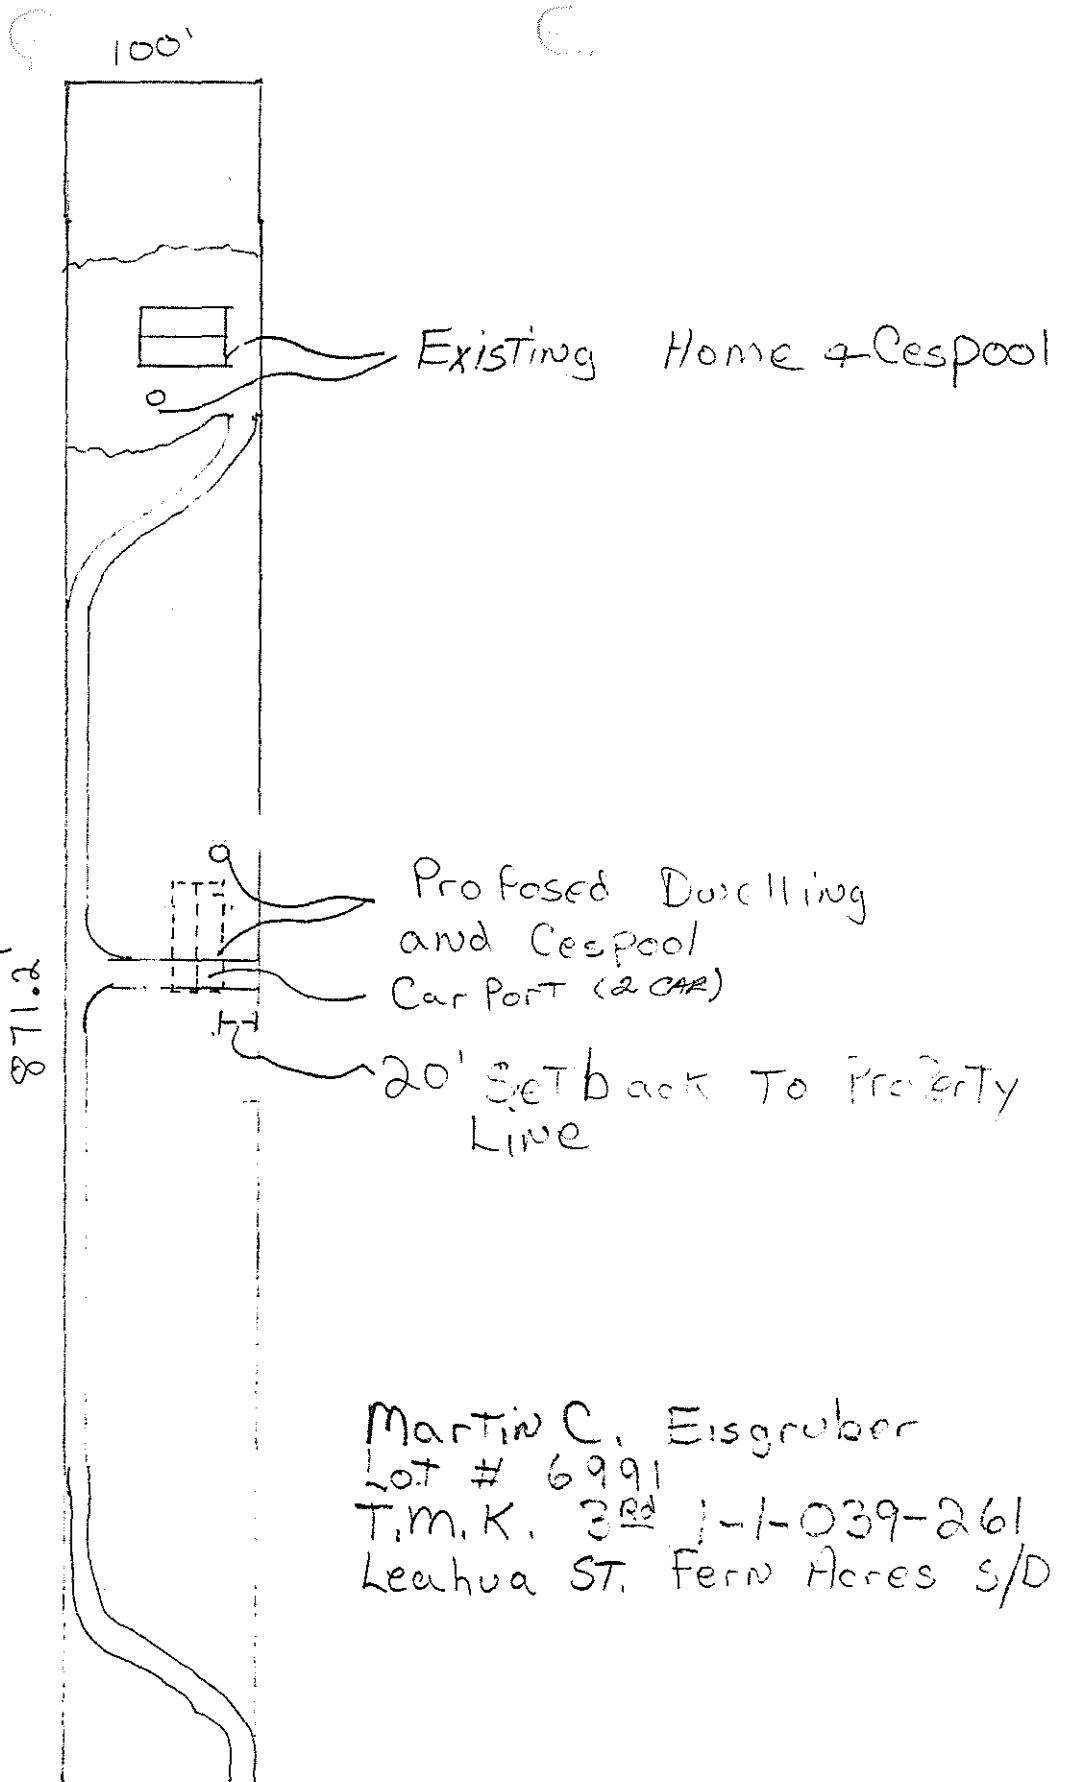 100'
Existing Home & Cespool
Proposed Dwelling
and Cespool
Carport (2 CAR)
871.2'
20' Setback To Property
Line
Martin C. Eisgruber
Lot # 6991
T.M.K. 3rd 1-1-039-261
Leahua ST. Fern Acres S/D